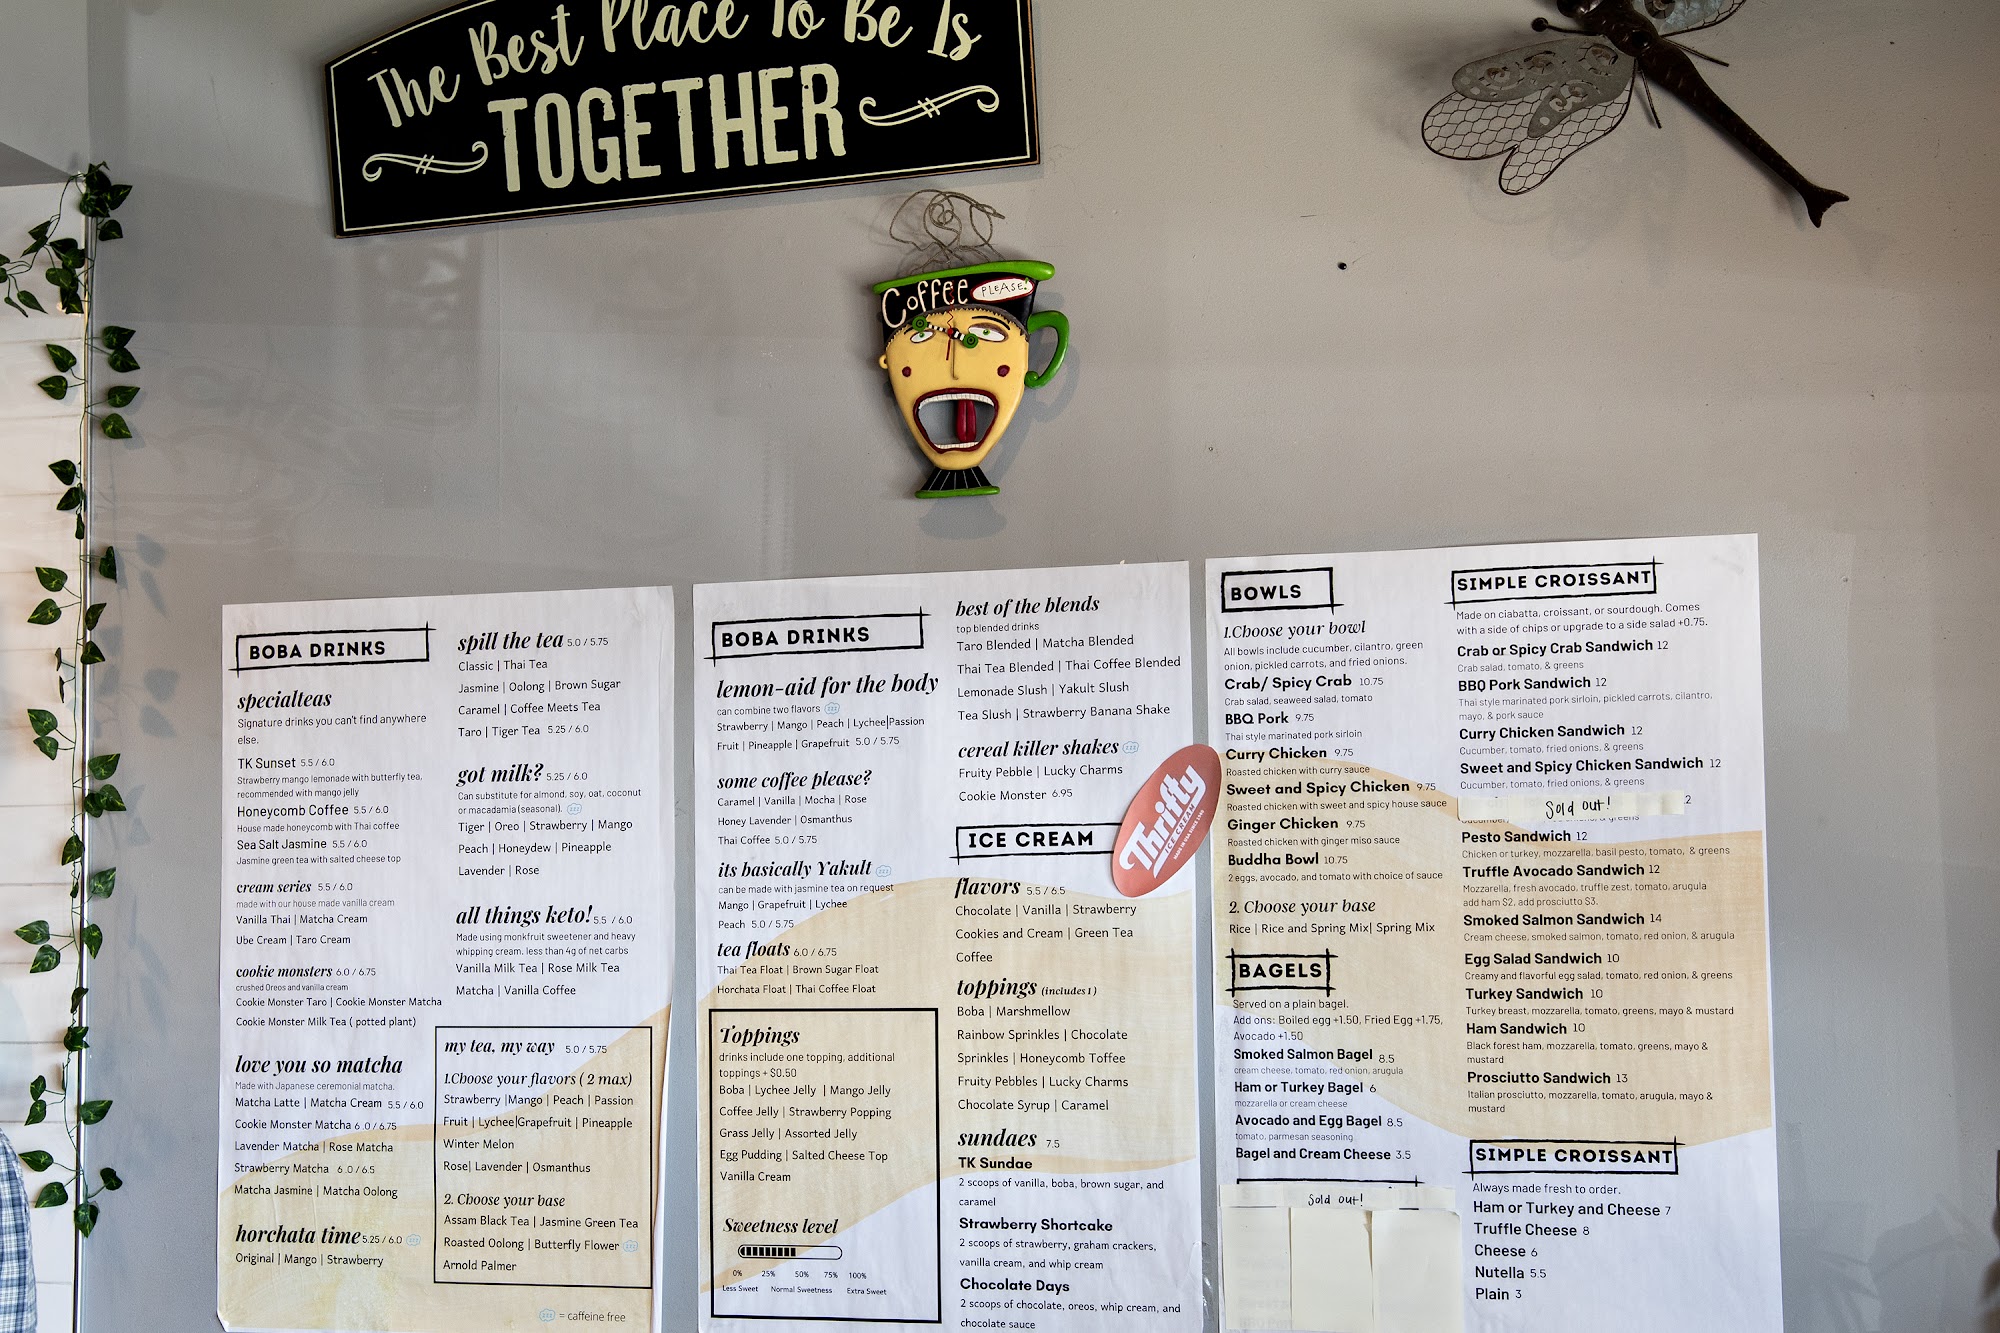 The Best Place To Be Is
TOGETHER
Coffee PLEASE!
BOBA DRINKS
specialteas
Signature drinks you can't find anywhere
else.
TK Sunset 5.5 / 6.0
Strawberry mango lemonade with butterfly tea,
recommended with mango jelly
Honeycomb Coffee 5.5 / 6.0
House made honeycomb with Thai coffee
Sea Salt Jasmine 5.5 / 6.0
Jasmine green tea with salted cheese top
cream series 5.5 / 6.0
made with our house made vanilla cream
Vanilla Thai | Matcha Cream
Ube Cream | Taro Cream
cookie monsters 6.0 / 6.75
crushed Oreos and vanilla cream
Cookie Monster Taro | Cookie Monster Matcha
Cookie Monster Milk Tea ( potted plant)
love you so matcha
Made with Japanese ceremonial matcha.
Matcha Latte | Matcha Cream 5.5 / 6.0
Cookie Monster Matcha 6.0 / 6.75
Lavender Matcha | Rose Matcha
Strawberry Matcha 6.0 / 6.5
Matcha Jasmine | Matcha Oolong
horchata time 5.25 / 6.0 zzz
Original | Mango | Strawberry
spill the tea 5.0 / 5.75
Classic | Thai Tea
Jasmine | Oolong | Brown Sugar
Caramel | Coffee Meets Tea
Taro | Tiger Tea 5.25 / 6.0
got milk? 5.25 / 6.0
Can substitute for almond, soy, oat, coconut
or macadamia (seasonal). zzz
Tiger | Oreo | Strawberry | Mango
Peach | Honeydew | Pineapple
Lavender | Rose
all things keto! 5.5 / 6.0
Made using monkfruit sweetener and heavy
whipping cream. less than 4g of net carbs
Vanilla Milk Tea | Rose Milk Tea
Matcha | Vanilla Coffee
my tea, my way 5.0 / 5.75
1.Choose your flavors ( 2 max)
Strawberry |Mango | Peach | Passion
Fruit | Lychee|Grapefruit | Pineapple
Winter Melon
Rose| Lavender | Osmanthus
2. Choose your base
Assam Black Tea | Jasmine Green Tea
Roasted Oolong | Butterfly Flower zzz
Arnold Palmer
zzz = caffeine free
BOBA DRINKS
lemon-aid for the body
can combine two flavors zzz
Strawberry | Mango | Peach | Lychee|Passion
Fruit | Pineapple | Grapefruit 5.0 / 5.75
some coffee please?
Caramel | Vanilla | Mocha | Rose
Honey Lavender | Osmanthus
Thai Coffee 5.0 / 5.75
its basically Yakult zzz
can be made with jasmine tea on request
Mango | Grapefruit | Lychee
Peach 5.0 / 5.75
tea floats 6.0 / 6.75
Thai Tea Float | Brown Sugar Float
Horchata Float | Thai Coffee Float
Toppings
drinks include one topping, additional
toppings + $0.50
Boba | Lychee Jelly | Mango Jelly
Coffee Jelly | Strawberry Popping
Grass Jelly | Assorted Jelly
Egg Pudding | Salted Cheese Top
Vanilla Cream
Sweetness level
0% 25% 50% 75% 100%
Less Sweet Normal Sweetness Extra Sweet
best of the blends
top blended drinks
Taro Blended | Matcha Blended
Thai Tea Blended | Thai Coffee Blended
Lemonade Slush | Yakult Slush
Tea Slush | Strawberry Banana Shake
cereal killer shakes zzz
Fruity Pebble | Lucky Charms
Cookie Monster 6.95
ICE CREAM
Thrifty
ICE CREAM
flavors 5.5 / 6.5
Chocolate | Vanilla | Strawberry
Cookies and Cream | Green Tea
Coffee
toppings (includes 1)
Boba | Marshmellow
Rainbow Sprinkles | Chocolate
Sprinkles | Honeycomb Toffee
Fruity Pebbles | Lucky Charms
Chocolate Syrup | Caramel
sundaes 7.5
TK Sundae
2 scoops of vanilla, boba, brown sugar, and
caramel
Strawberry Shortcake
2 scoops of strawberry, graham crackers,
vanilla cream, and whip cream
Chocolate Days
2 scoops of chocolate, oreos, whip cream, and
chocolate sauce
BOWLS
1.Choose your bowl
All bowls include cucumber, cilantro, green
onion, pickled carrots, and fried onions.
Crab/ Spicy Crab 10.75
Crab salad, seaweed salad, tomato
BBQ Pork 9.75
Thai style marinated pork sirloin
Curry Chicken 9.75
Roasted chicken with curry sauce
Sweet and Spicy Chicken 9.75
Roasted chicken with sweet and spicy house sauce
Ginger Chicken 9.75
Roasted chicken with ginger miso sauce
Buddha Bowl 10.75
2 eggs, avocado, and tomato with choice of sauce
2. Choose your base
Rice | Rice and Spring Mix| Spring Mix
BAGELS
Served on a plain bagel.
Add ons: Boiled egg +1.50, Fried Egg +1.75,
Avocado +1.50
Smoked Salmon Bagel 8.5
cream cheese, tomato, red onion, arugula
Ham or Turkey Bagel 6
mozzarella or cream cheese
Avocado and Egg Bagel 8.5
tomato, parmesan seasoning
Bagel and Cream Cheese 3.5
Sold out!
SIMPLE CROISSANT
Made on ciabatta, croissant, or sourdough. Comes
with a side of chips or upgrade to a side salad +0.75.
Crab or Spicy Crab Sandwich 12
Crab salad, tomato, & greens
BBQ Pork Sandwich 12
Thai style marinated pork sirloin, pickled carrots, cilantro,
mayo, & pork sauce
Curry Chicken Sandwich 12
Cucumber, tomato, fried onions, & greens
Sweet and Spicy Chicken Sandwich 12
Cucumber, tomato, fried onions, & greens
Sold out!
Pesto Sandwich 12
Chicken or turkey, mozzarella, basil pesto, tomato, & greens
Truffle Avocado Sandwich 12
Mozzarella, fresh avocado, truffle zest, tomato, arugula
add ham $2, add prosciutto $3.
Smoked Salmon Sandwich 14
Cream cheese, smoked salmon, tomato, red onion, & arugula
Egg Salad Sandwich 10
Creamy and flavorful egg salad, tomato, red onion, & greens
Turkey Sandwich 10
Turkey breast, mozzarella, tomato, greens, mayo & mustard
Ham Sandwich 10
Black forest ham, mozzarella, tomato, greens, mayo &
mustard
Prosciutto Sandwich 13
Italian prosciutto, mozzarella, tomato, arugula, mayo &
mustard
SIMPLE CROISSANT
Always made fresh to order.
Ham or Turkey and Cheese 7
Truffle Cheese 8
Cheese 6
Nutella 5.5
Plain 3